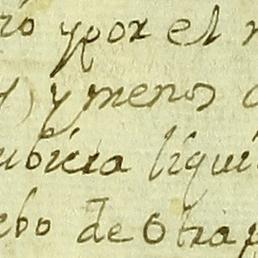 ró y por el
) y menos
ubiera liqui
ebo de Otra